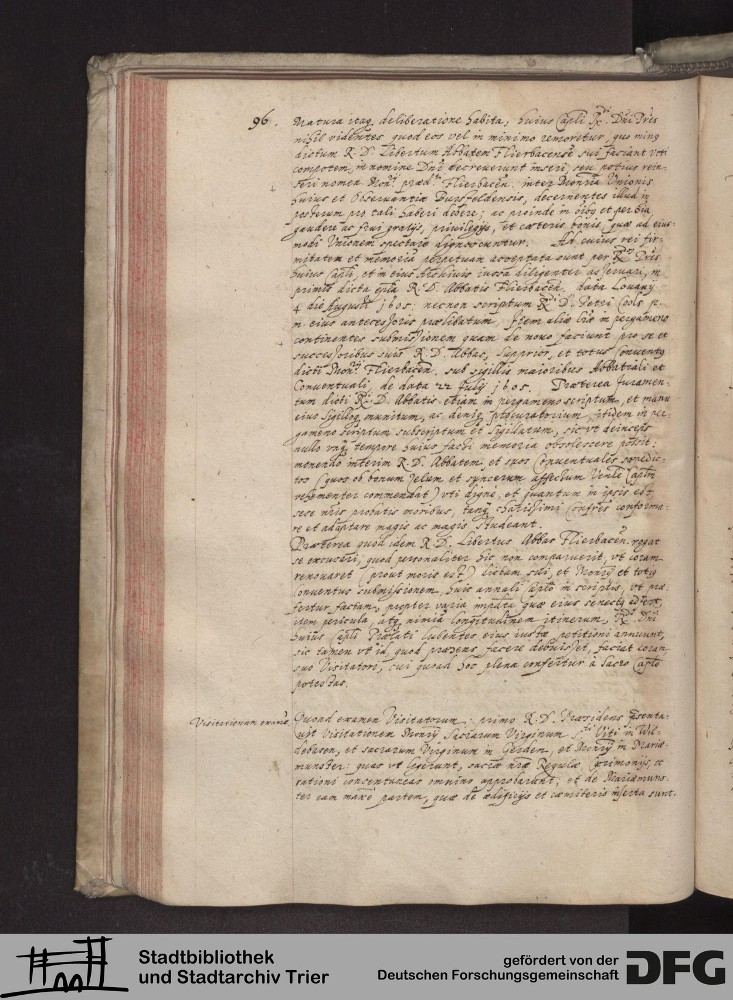 96. Matura itaq. deliberatione habita, huius Capli Rx. Dni Prẽs
nihil videntes quod eos vel in minimo remoretur, quo minq
dictum R. D. Libertum Abbatem Flierbacensẽ sui faciant voti
compotem, in nomine Dni decreverunt inseri, seu potius rein-
seri nomen Monrÿ præd. Flierbaceñ. inter Monria Unionis
huius et Observantiæ Bursfeldensis, decernentes illud in
posterum pro tali haberi debere; ac proinde in oibq et per oia
gaudere ac frui gratijs, privilegijs, et cæteris bonis, quæ ad eius-
modi Unionem spectare dignoscuntur. Ad cuius rei fir-
mitatem et memoriã perpetuam acceptata sunt per R. Prẽs
huius Capli, et in eius Archivio iussa diligenter asservari, in
primis dicta epla R. D. Abbatis Flierbaceñ. data Lovanÿ
4 die Augusti 1605. necnon scriptum R. D. Petri Cools p.
m. eius antecessoris prælibatum. Item aliæ lrẽ in pergameno
continentes submissionem quam de novo faciunt pro se et
successoribus suis R. D. Abbas, Supprior, et totus Conventq
dicti Monrÿ Flierbaceñ. sub sigillis maioribus Abbatiali et
Conventuali, de data 22 Julÿ 1605. Præterea Juramen-
tum dicti R. D. Abbatis etiam in pergameno scriptum, et manu
eius Sigilloq munitum, ac deniq. procuratorium, itidem in per-
gameno scriptum subscriptum et sigillatum, sic vt deinceps
nullo vnq tempore huius facti memoria obsolescere possit:
monendo interim R. D. Abbatem, et suos Conventuales sæpedic-
tos (quos ob bonum zelum et syncerum affectum Venle Caplm
vehementer commendat) vti digne, et quantum in ipsis est
sese nris probatis moribus, tanq charissimi Confres conforma-
re et adaptare magis ac magis studeant.
Præterea quod idem R. D. Libertus Abbas Flierbaceñ. rogat
se excusari, quod personaliter hic non comparuerit, vt coram
renovaret (prout moris est) dictam sui, et Monrÿ et totiq
Conventus submissionem, huic annali Caplo in scriptis, vt præ-
fertur factam, propter varia impdta quæ eius senectq adfert,
item pericula, atq. nimiã longitudinem itinerum, Rx. Dni
huius Capli Prælati lubentes eius iustæ petitioni annuunt,
sic tamen vt id, quod præsens facere debuisset, faciat coram
suo Visitatore, cui quoad hoc plena confertur à Sacro Caplo
potestas.
Visitationum examẽ. Quoad examen Visitatorum: primo R. D. Præsidens psenta-
vit Visitationem Monrÿ Sacrarum Virginum S. Viti in Wil-
debasen, et sacrarum Virginum in Gerden, et Monrÿ in Mariæ-
munster: quas vt legerunt, sacræ nræ Regulæ, Cærimonijs, et
rationi consentaneas omnino approbarunt, et de Mariæmuns-
ter eam maxẽ partem, quæ de ædificijs et cæmiterijs inserta sunt.
Stadtbibliothek
und Stadtarchiv Trier
gefördert von der
Deutschen Forschungsgemeinschaft
DFG